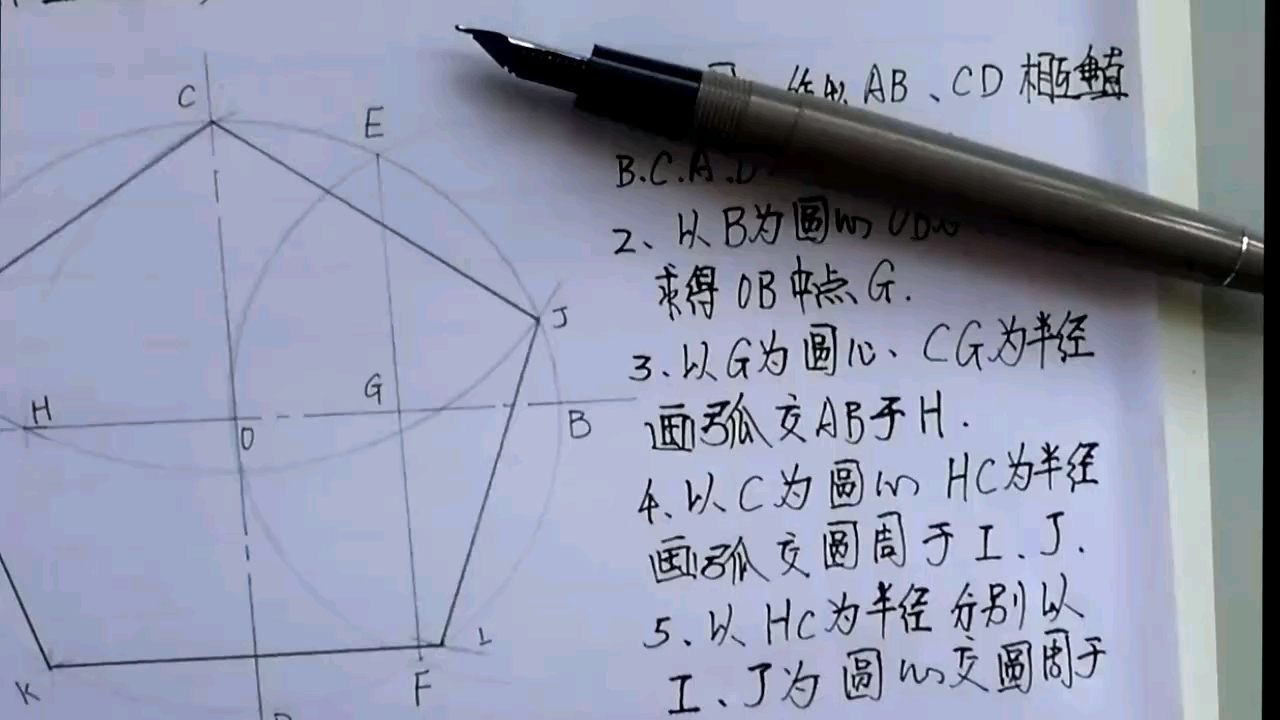 C
E
J
H
G
O
B
K
F
L
AB、CD 相互垂直
B.C.A.D
2、以B为圆心
求得 OB 中点 G.
3.以G为圆心、CG为半径
画弧交AB于H.
4.以C为圆心 HC为半径
画弧交圆周于I.J.
5、以HC为半径分别以
I、J为圆心交圆周于